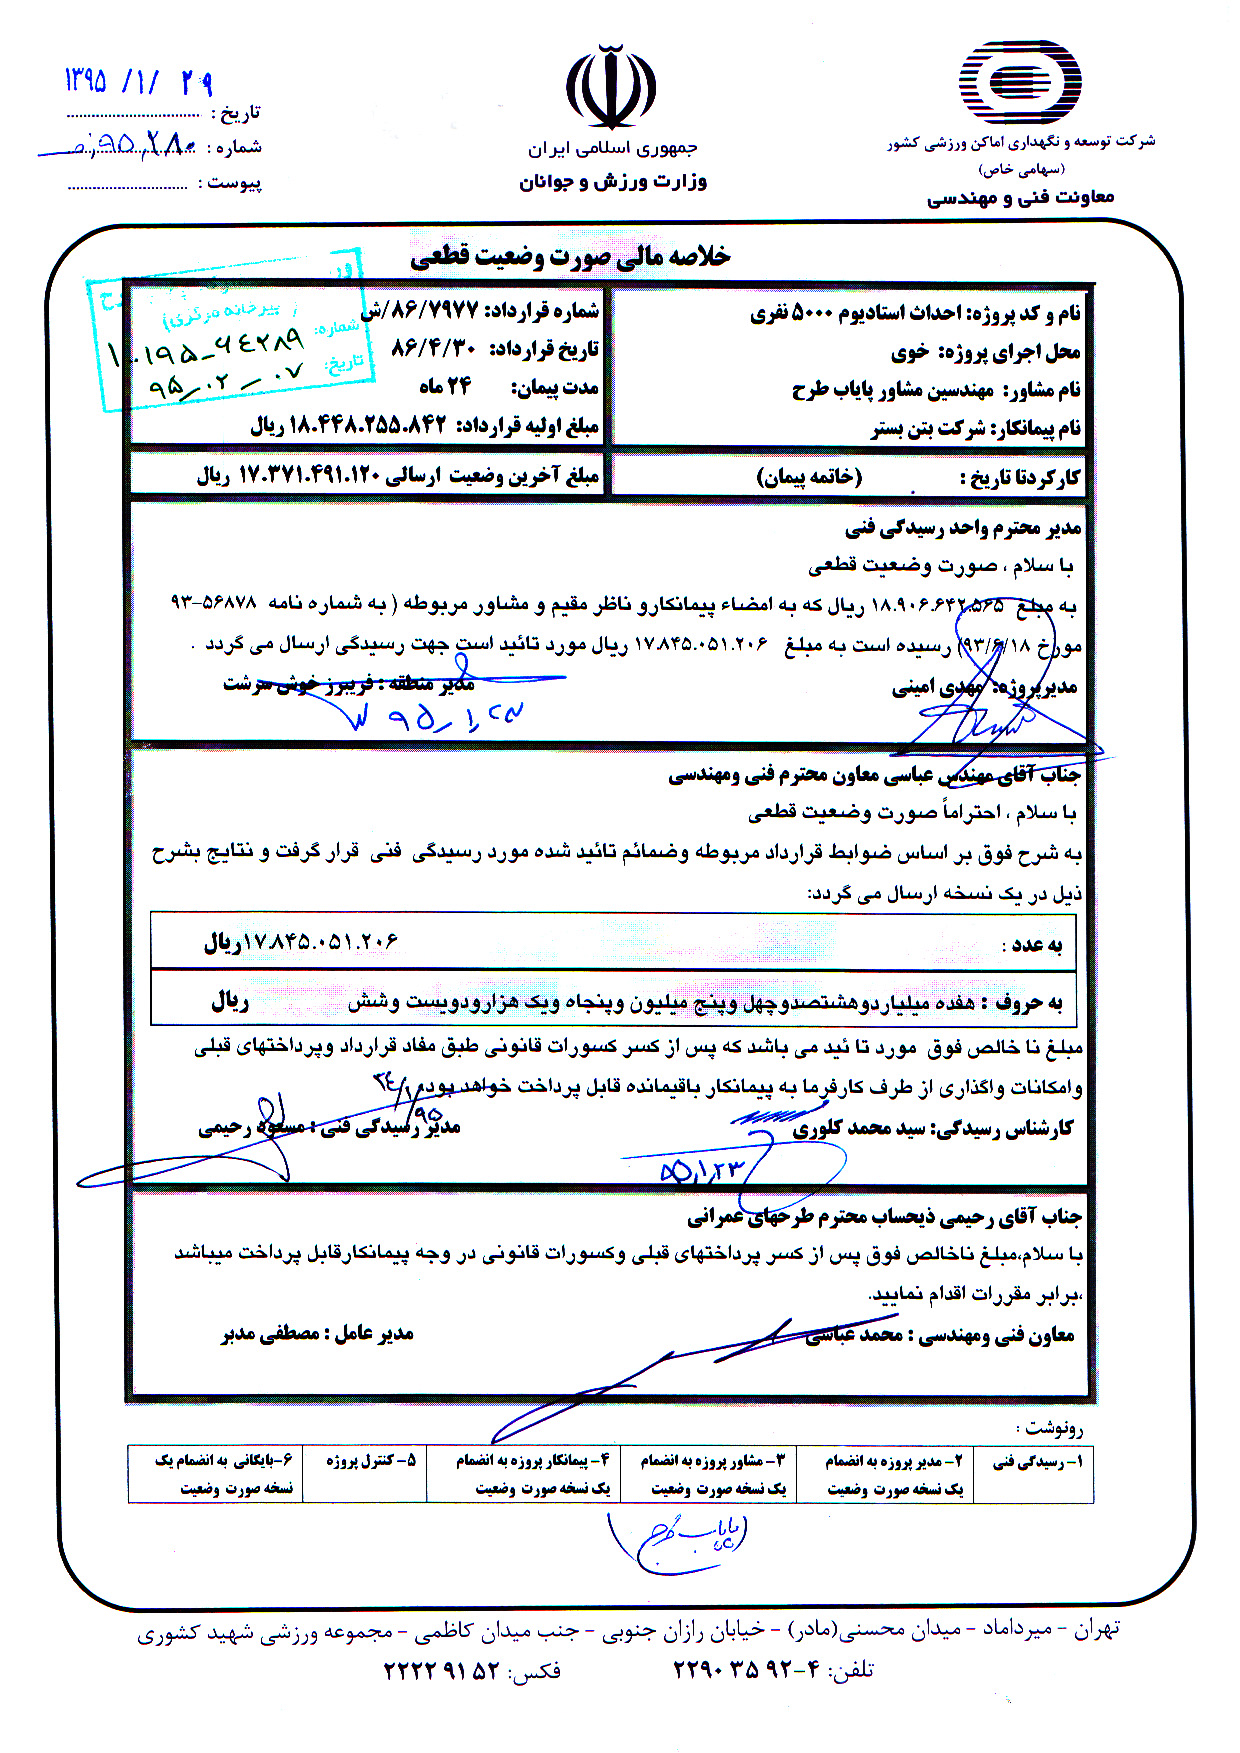 شرکت توسعه و نگهداری اماکن ورزشی کشور
(سهامی خاص)
معاونت فنی و مهندسی
جمهوری اسلامی ایران
وزارت ورزش و جوانان
تاریخ : ۱۳۹۵/۱/۲۹
شماره :
پیوست :
خلاصه مالی صورت وضعیت قطعی
نام و کد پروژه: احداث استادیوم ۵۰۰۰ نفری
محل اجرای پروژه: خوی
نام مشاور: مهندسین مشاور پایاب طرح
نام پیمانکار: شرکت بتن بستر
شماره قرارداد: ۸۶/۷۹۷۷/ش
تاریخ قرارداد: ۸۶/۴/۳۰
مدت پیمان: ۲۴ ماه
مبلغ اولیه قرارداد: ۱۸.۴۴۸.۲۵۵.۸۴۲ ریال
دبیرخانه مرکزی
شماره:
تاریخ: ۹۵-۰۲-۰۷
کارکردتا تاریخ : (خاتمه پیمان)
مبلغ آخرین وضعیت ارسالی ۱۷.۳۷۱.۴۹۱.۱۲۰ ریال
مدیر محترم واحد رسیدگی فنی
با سلام ، صورت وضعیت قطعی
به مبلغ ۱۸.۹۰۶.۶۴۲.۵۶۵ ریال که به امضاء پیمانکارو ناظر مقیم و مشاور مربوطه ( به شماره نامه ۵۶۸۷۸-۹۳
مورخ ۹۳/۶/۱۸) رسیده است به مبلغ ۱۷.۸۴۵.۰۵۱.۲۰۶ ریال مورد تائید است جهت رسیدگی ارسال می گردد .
مدیرپروژه: مهدی امینی
مدیر منطقه : فریبرز خوش سرشت
جناب آقای مهندس عباسی معاون محترم فنی ومهندسی
با سلام ، احتراماً صورت وضعیت قطعی
به شرح فوق بر اساس ضوابط قرارداد مربوطه وضمائم تائید شده مورد رسیدگی فنی قرار گرفت و نتایج بشرح
ذیل در یک نسخه ارسال می گردد:
به عدد : ۱۷.۸۴۵.۰۵۱.۲۰۶ریال
به حروف : هفده میلیاردوهشتصدوچهل وپنج میلیون وپنجاه ویک هزارودویست وشش ریال
مبلغ نا خالص فوق مورد تا ئید می باشد که پس از کسر کسورات قانونی طبق مفاد قرارداد وپرداختهای قبلی
وامکانات واگذاری از طرف کارفرما به پیمانکار باقیمانده قابل پرداخت خواهد بود.
کارشناس رسیدگی: سید محمد کلوری
مدیر رسیدگی فنی : مسعود رحیمی
جناب آقای رحیمی ذیحساب محترم طرحهای عمرانی
با سلام،مبلغ ناخالص فوق پس از کسر پرداختهای قبلی وکسورات قانونی در وجه پیمانکارقابل پرداخت میباشد
،برابر مقررات اقدام نمایید.
معاون فنی ومهندسی : محمد عباسی
مدیر عامل : مصطفی مدبر
رونوشت :
۱-رسیدگی فنی
۲-مدیر پروژه به انضمام یک نسخه صورت وضعیت
۳-مشاور پروژه به انضمام یک نسخه صورت وضعیت
۴-پیمانکار پروژه به انضمام یک نسخه صورت وضعیت
۵-کنترل پروژه
۶-بایگانی به انضمام یک نسخه صورت وضعیت
تهران - میرداماد - میدان محسنی(مادر) - خیابان رازان جنوبی - جنب میدان کاظمی - مجموعه ورزشی شهید کشوری
تلفن: ۴-۹۲ ۳۵ ۲۲۹۰ فکس: ۵۲ ۹۱ ۲۲۲۲